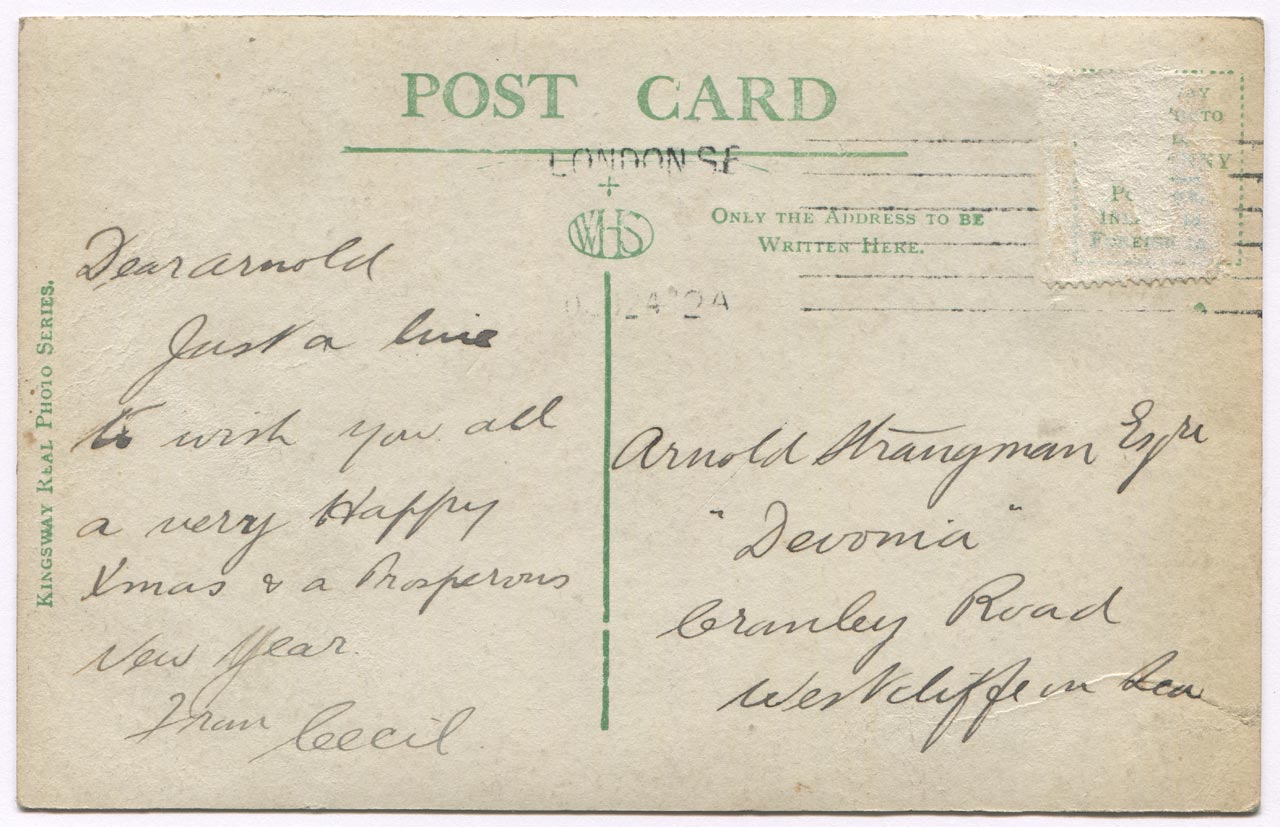 POST CARD
LONDON S.E
WHS
ONLY THE ADDRESS TO BE
WRITTEN HERE.
KINGSWAY REAL PHOTO SERIES.
Dear Arnold
Just a line
to wish you all
a very Happy
Xmas & a Prosperous
New Year.
From Cecil.
Arnold Strangman Esqre
"Devonia"
Cranley Road
Westcliffe on Sea